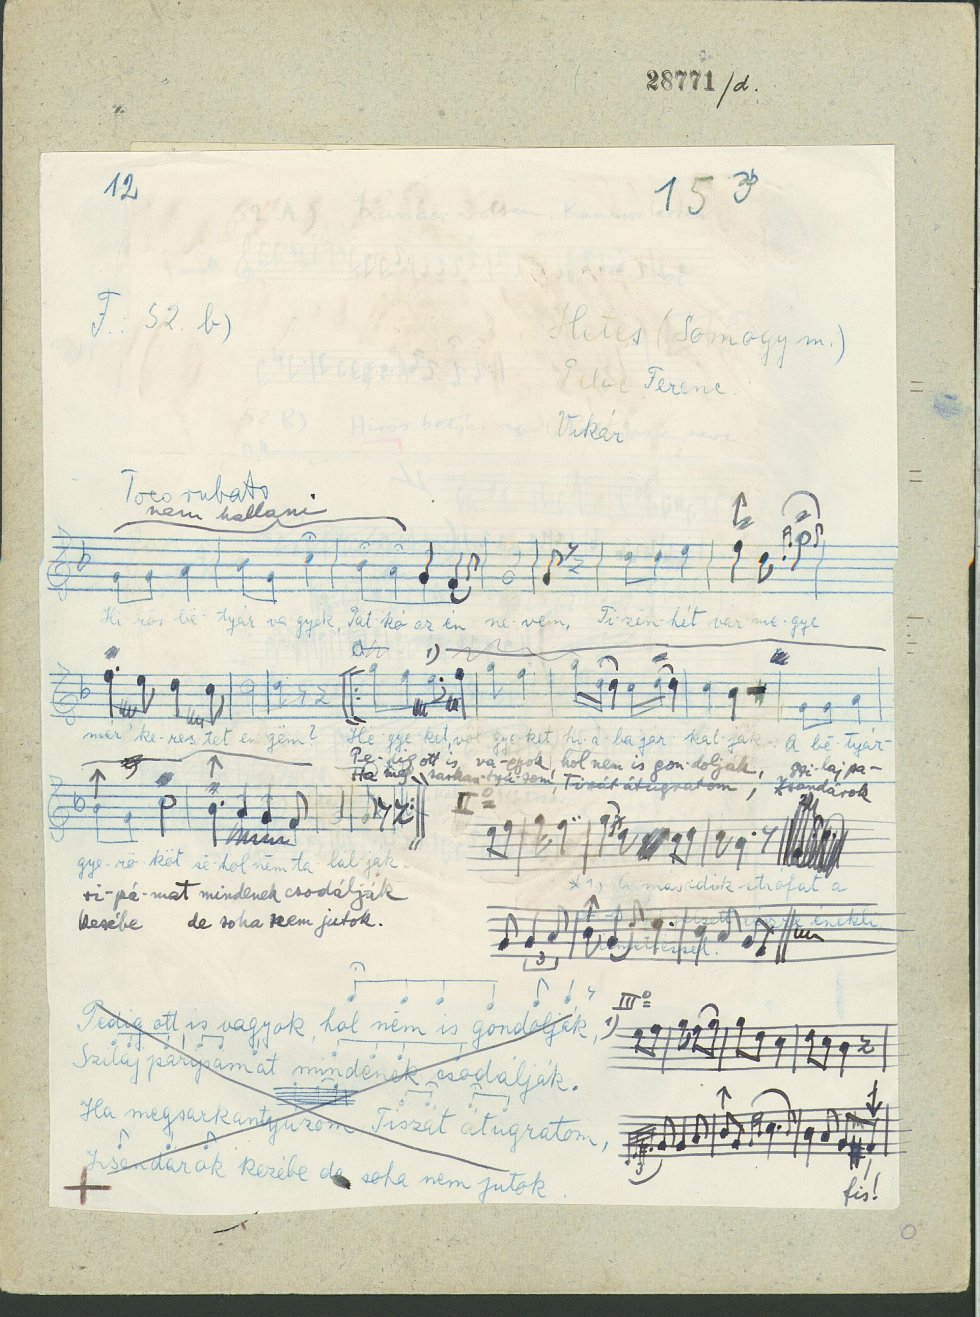 28771/d.
12
153
F. 52. b)
Hetes (Somogy m.)
Ferenc
Vikár
Poco rubato
nem hallani
Hi-rös bë-tyár va-gyok, Pat-kó az én ne-vem, Ti-zën-hét var-me-gye
1)
mér' ke-res-tet en-gëm? Hë-gye-ket, völ-gye-ket hi-á-ba jár-kál-ják. A bë-tyár-
Pe-dig ott is va-gyok hol nem is gon-dolják, szi-laj pa-
Ha meg-sarkan-tyú-zom, Tiszát átugratom, zsandárok
II°
gye-rö-köt së-hol nëm ta-lál-ják.
ri-pá-mat mindenek csodálják
kezébe de soha nem jutok.
x 1) A második strófát a
énekli
3
III°
1)
Pedig ott is vagyok, hol nëm is gondolják,
Szilaj paripámat mindënëk csodálják.
Ha megsarkantyúzom Tiszát átugratom,
Zsëndárok kezébe de soha nem jutok.
3
fis!